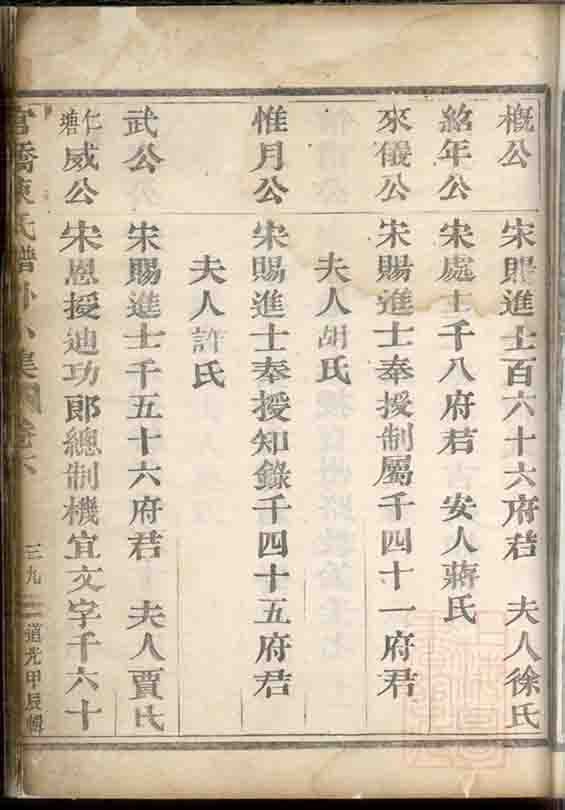 概公 宋賜進士百六十六府君 夫人徐氏
紹年公 宋處士千八府君 安人蔣氏
來儀公 宋賜進士奉授制屬千四十一府君
夫人胡氏
惟月公 宋賜進士奉授知錄千四十五府君
夫人許氏
武公 宋賜進士千五十六府君 夫人賈氏
仁塘 威公 宋恩授迪功郎總制機宜文字千六十
官橋陳氏譜外小集 卷六 三九 道光甲辰輯